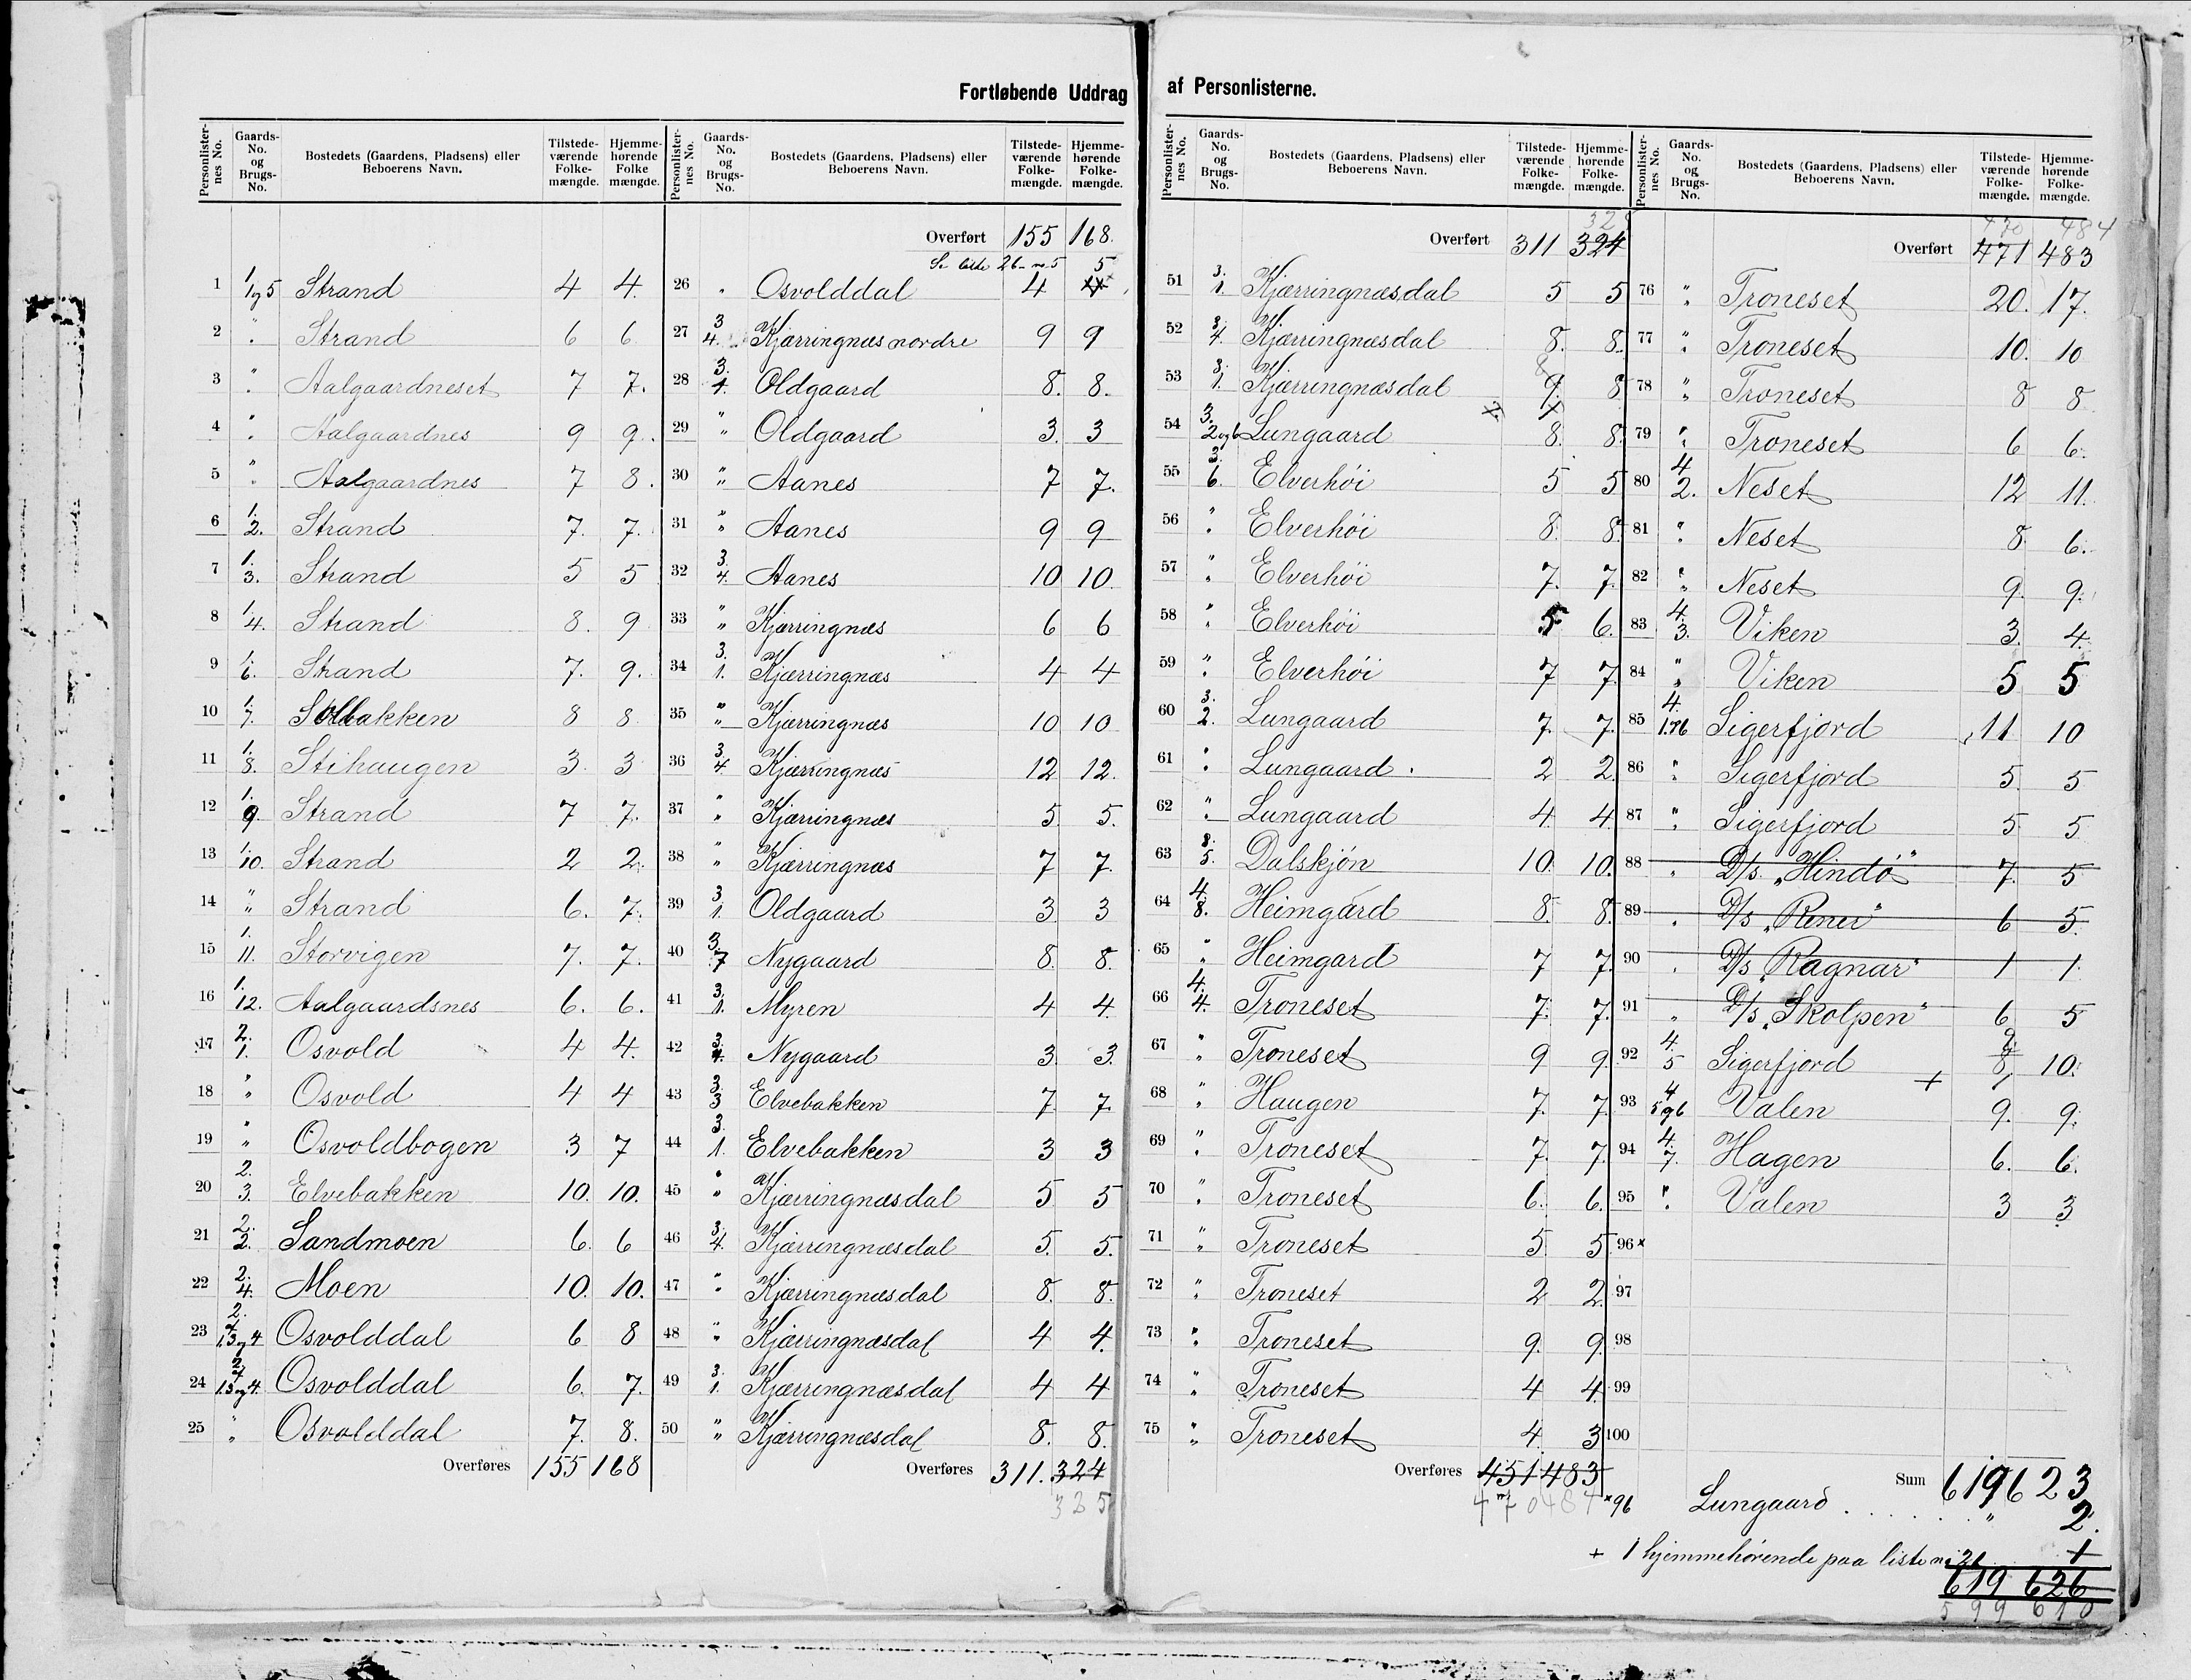 Fortløbende Uddrag af Personlisterne.
Personlisternes No. | Gaards-No. og Brugs-No. | Bostedets (Gaardens, Pladsens) eller Beboerens Navn. | Tilstedeværende Folkemængde. | Hjemmehørende Folke mængde.
1 | 1/1 og 5 | Strand | 4 | 4.
2 | " | Strand | 6 | 6
3 | " | Aalgaardneset | 7 | 7.
4 | " | Aalgaardnes | 9 | 9.
5 | " | Aalgaardnes | 7 | 8.
6 | 1./2. | Strand | 7. | 7.
7 | 1./3. | Strand | 5 | 5
8 | 1./4. | Strand | 8. | 9
9 | 1./6. | Strand | 7. | 9.
10 | 1./7. | Solbakken | 8 | 8
11 | 1./8. | Stihaugen | 3. | 3
12 | 1./9. | Strand | 7 | 7.
13 | 1./10. | Strand | 2 | 2.
14 | " | Strand | 6. | 7.
15 | 1./11. | Storvigen | 7. | 7.
16 | 1./12. | Aalgaardsnes | 6. | 6.
17 | 2./1. | Osvold | 4 | 4.
18 | " | Osvold | 4 | 4
19 | " | Osvoldbogen | 3 | 7
20 | 2./3. | Elvebakken | 10. | 10.
21 | 2./2. | Sandmoen | 6. | 6
22 | 2./4. | Moen | 10. | 10.
23 | 2./1.3 og 4 | Osvolddal | 6 | 8
24 | 2/1.3 og 4. | Osvolddal | 6. | 7.
25 | " | Osvolddal | 7. | 8.
Overføres 155 168
Personlisternes No. | Gaards-No. og Brugs-No. | Bostedets (Gaardens, Pladsens) eller Beboerens Navn. | Tilstedeværende Folkemængde. | Hjemmehørende Folkemængde.
Overført 155 168.
Se liste 26 no 5 5
26 | . | Osvolddal | 4
27 | 3/4. | Kjærringnæs nordre | 9 | 9
28 | 3./4. | Oldgaard | 8. | 8.
29 | " | Oldgaard | 3. | 3
30 | " | Aanes | 7 | 7.
31 | " | Aanes | 9 | 9
32 | 3./4. | Aanes | 10 | 10.
33 | " | Kjærringnæs | 6 | 6
34 | 3./1. | Kjærringnæs | 4 | 4
35 | " | Kjærringnæs | 10 | 10
36 | 3./4. | Kjærringnæs | 12 | 12.
37 | " | Kjærringnæs | 5. | 5.
38 | " | Kjærringnæs | 7 | 7.
39 | 3./1. | Oldgaard | 3. | 3
40 | 3./7 | Nygaard | 8. | 8.
41 | 3./1. | Myren | 4 | 4.
42 | 3./4. | Nygaard | 3. | 3.
43 | 3./3 | Elvebakken | 7. | 7.
44 | 3./1. | Elvebakken | 3 | 3
45 | " | Kjærringnæsdal | 5 | 5
46 | 3./4. | Kjærringnæsdal | 5. | 5.
47 | " | Kjærringnæsdal | 8. | 8.
48 | " | Kjærringnæsdal | 4 | 4.
49 | 3./1. | Kjærringnæsdal | 4 | 4
50 | " | Kjærringnæsdal | 8. | 8.
Overføres 311. 324
325
Personlisternes No. | Gaards-No. og Brugs-No. | Bostedets (Gaardens, Pladsens) eller Beboerens Navn. | Tilstedeværende Folkemængde. | Hjemmehørende Folkemængde.
Overført 311 324
51 | 3./1. | Kjærringnæsdal | 5 | 5
52 | 3./4. | Kjærringnæsdal | 8. | 8.
53 | 3./1. | Kjærringnæsdal | 9. | 8
54 | 3./2 og 6 | Lungaard | 8. | 8.
55 | 3./6. | Elverhöi | 5 | 5
56 | " | Elverhöi | 8. | 8.
57 | " | Elverhöi | 7. | 7.
58 | " | Elverhöi | 5 | 6.
59 | " | Elverhöi | 7 | 7.
60 | 3./2. | Lungaard | 7. | 7.
61 | " | Lungaard . | 2 | 2.
62 | " | Lungaard | 4. | 4.
63 | 8./5. | Dalskjön | 10. | 10.
64 | 4./8. | Heimgard | 8. | 8.
65 | " | Heimgard | 7 | 7.
66 | 4./4. | Troneset | 7. | 7.
67 | " | Troneset | 9 | 9.
68 | " | Haugen | 7. | 7.
69 | " | Troneset | 7. | 7.
70 | " | Troneset | 6. | 6.
71 | " | Troneset | 5 | 5.
72 | " | Troneset | 2 | 2.
73 | " | Troneset | 9. | 9.
74 | " | Troneset | 4 | 4.
75 | " | Troneset | 4. | 3
Overføres 451 483
470 484
Personlisternes No. | Gaards-No. og Brugs-No. | Bostedets (Gaardens, Pladsens) eller Beboerens Navn. | Tilstedeværende Folkemængde. | Hjemmehørende Folkemængde.
470 484
Overført 471 483
76 | " | Troneset | 20. | 17.
77 | " | Troneset | 10. | 10
78 | " | Troneset | 8 | 8
79 | " | Troneset | 6 | 6.
80 | 4/2. | Neset | 12 | 11.
81 | " | Neset | 8. | 6.
82 | " | Neset | 9. | 9.
83 | 4./3. | Viken | 3. | 4.
84 | " | Viken | 5 | 5
85 | 4./1.76 | Sigerfjord | 11 | 10
86 | " | Sigerfjord | 5. | 5
87 | " | Sigerfjord | 5 | 5
88 | . | D/s. „Hindö" | 7. | 5
89 | . | D/s „Rener" | 6 | 5.
90 | . | D/s „Ragnar" | 1 | 1.
91 | " | D/s „Skolpen" | 6 | 5
92 | 4./5 | Sigerfjord | 8 | 10.
93 | 4/5 og 6 | Valen | 9. | 9.
94 | 4./7. | Hagen | 6. | 6.
95 | " | Valen | 3 | 3
96 x
97
98
99
100
Sum 619 623
x 96 Lungaard . . . . . " 2.
+ 1 hjemmehörende paa liste no 26 1
619 626
599 610